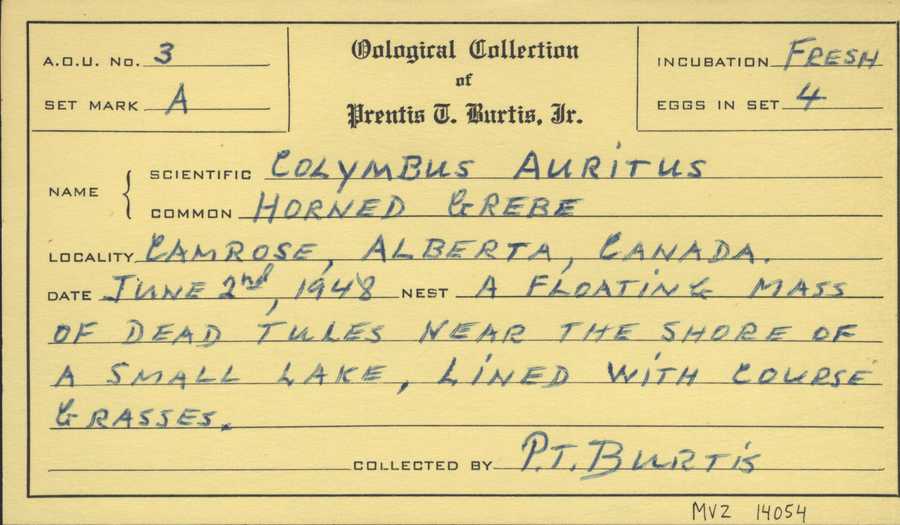 A.O.U. No. 3
SET MARK A
Oological Collection
of
Prentis T. Burtis, Jr.
INCUBATION FRESH
EGGS IN SET 4
NAME
SCIENTIFIC COLYMBUS AURITUS
COMMON HORNED GREBE
LOCALITY CAMROSE, ALBERTA, CANADA.
DATE JUNE 2nd, 1948 NEST A FLOATING MASS
OF DEAD TULES NEAR THE SHORE OF
A SMALL LAKE, LINED WITH COURSE
GRASSES.
COLLECTED BY P.T. BURTIS
MVZ 14054